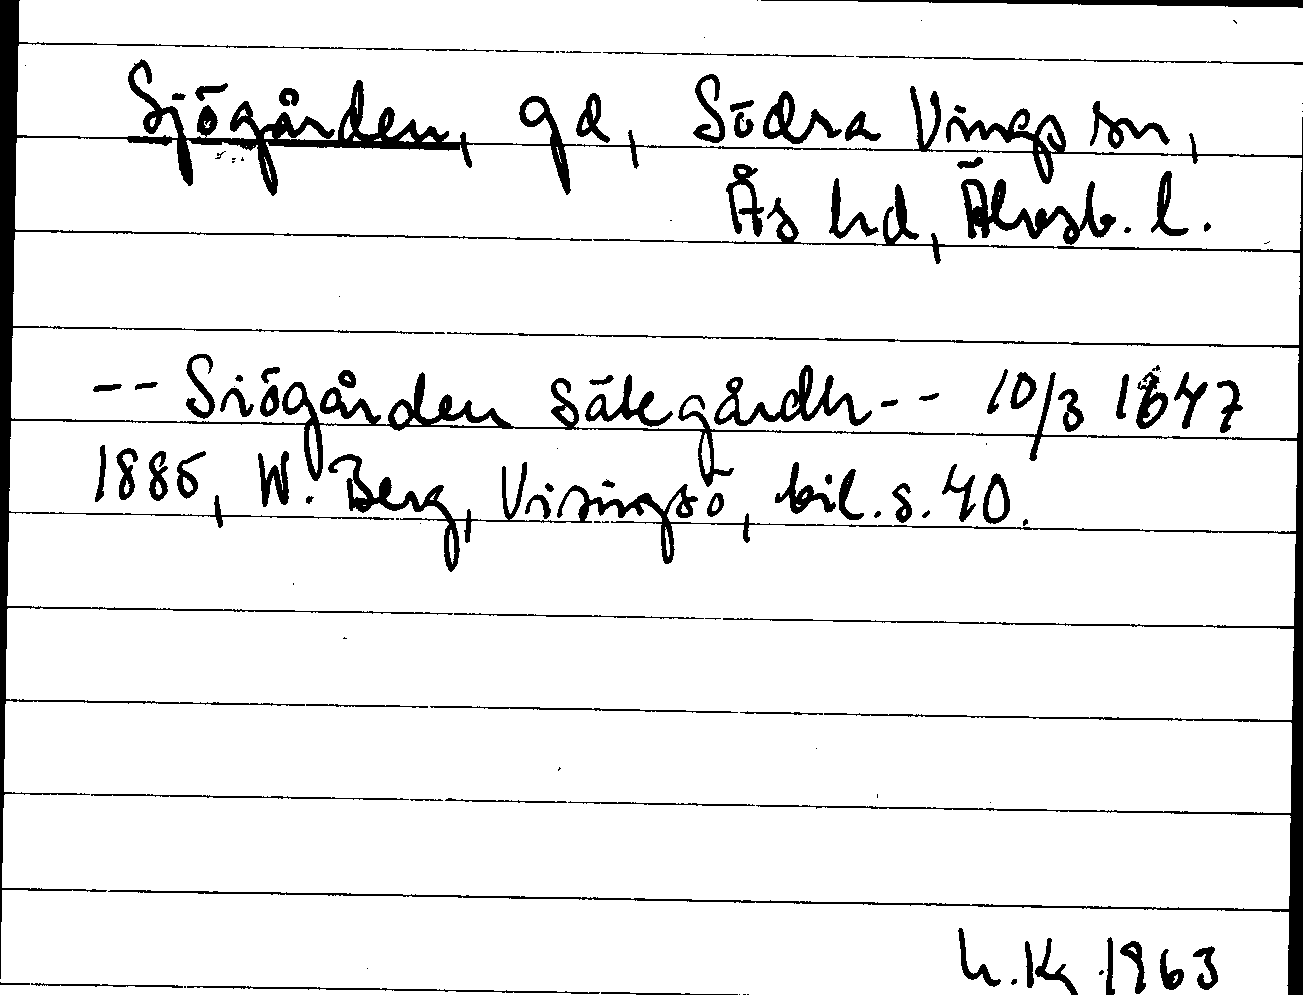 Sjögården, gd, Södra Vings sn,
Ås hd, Älvsb. l.
-- Siögården Sätegårdh -- 10/3 1647
1885, W. Berg, Visingsö, bil. s. 40.
1963